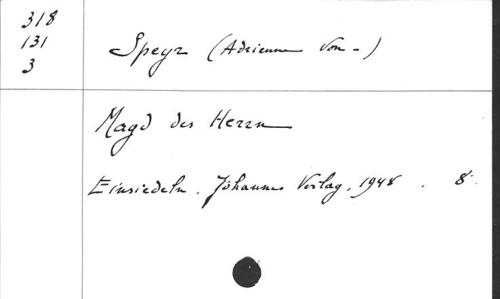 318
131
3
Speyr (Adrienne von -)
Magd des Herrn
Einsiedeln. Johannes Verlag, 1948. 8°